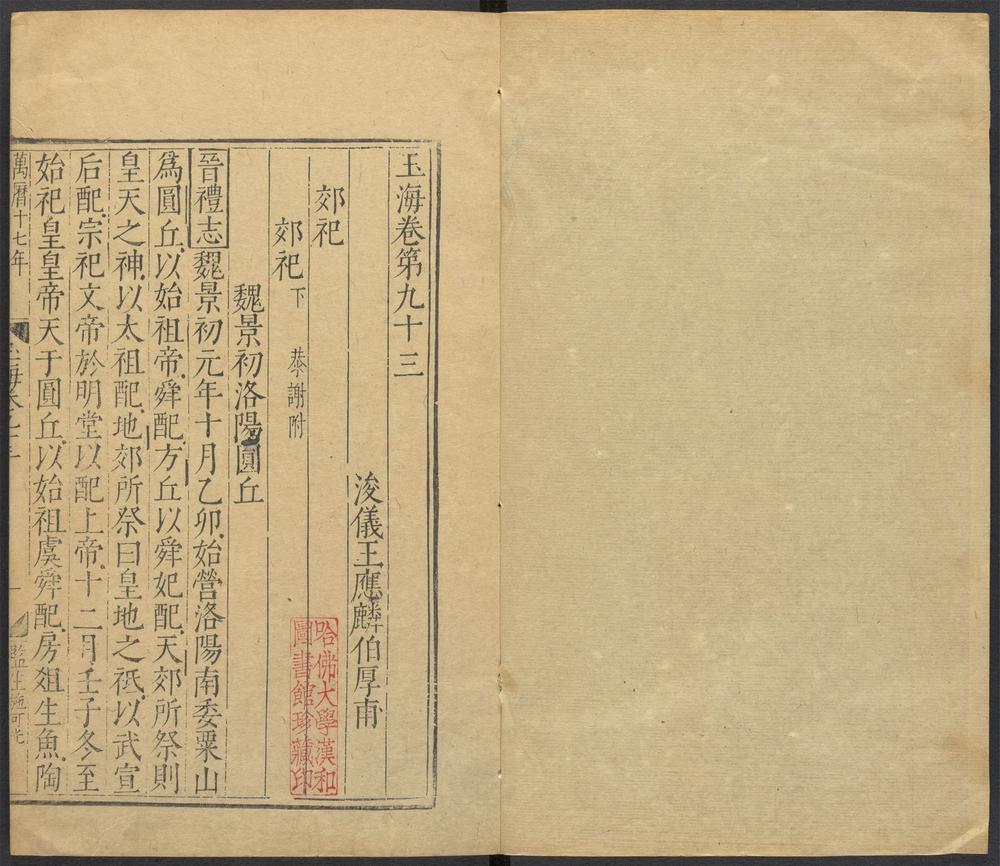 玉海卷第九十三
浚儀王應麟伯厚甫
郊祀
郊祀下 恭謝附
魏景初洛陽圓丘
晉禮志魏景初元年十月乙卯始營洛陽南委粟山
爲圓丘以始祖帝舜配方丘以舜妃配天郊所祭則
皇天之神以太祖配地郊所祭曰皇地之祇以武宣
后配宗祀文帝於明堂以配上帝十二月壬子冬至
始祀皇皇帝天于圓丘以始祖虞舜配房俎生魚陶
萬曆十七年 玉海卷九十三 一 監生
哈佛大學漢和
圖書館珍藏印